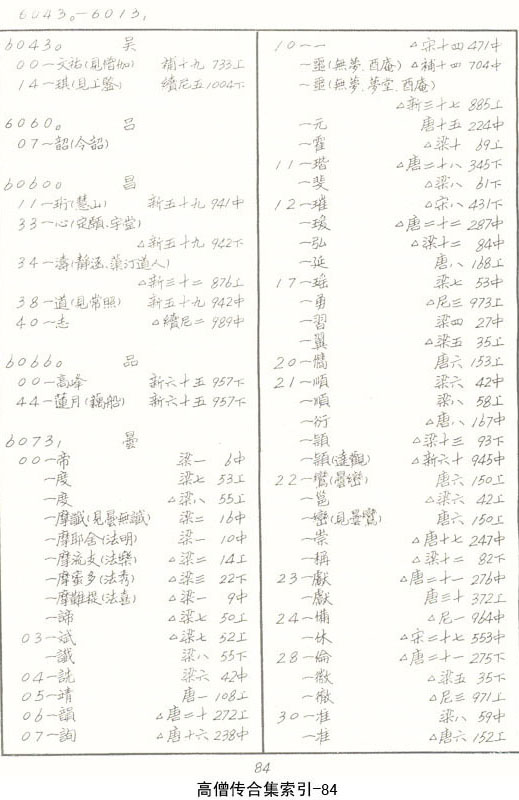 6043₀—6013₁
6043₀ 吴
00～文祐(見悟伽) 補十九 733上
14～琪(見工鑒) 續尼五 1004下
6060₀ 呂
07～韶(令韶)
6060₀ 昌
11～珩(慧山) 新五十九 941中
33～心(定願、宇堂)
△新五十九 942下
34～濤(靜涵、蘋汀道人)
△新三十二 876上
38～道(見常照) 新五十九 942中
40～志 △續尼二 989中
6066₀ 品
00～高峰 新六十五 957下
44～蓮月(藕船) 新六十五 957下
6073₁ 曇
00～帝 梁一 6中
～度 梁七 53上
～度 △梁八 55上
～摩讖(見曇無讖) 梁二 16中
～摩耶舍(法明) 梁一 10中
～摩流支(法樂) △梁二 14上
～摩蜜多(法秀) △梁三 22下
～摩難提(法喜) △梁一 9中
～諦 △梁七 50上
03～斌 △梁七 52上
～識 梁八 55下
04～詵 梁六 42中
05～靖 唐一 108上
06～韻 △唐二十 272上
07～詢 △唐十六 238中
10～一 △宋十四 471中
～噩(無夢、酉庵) △補十四 704中
～噩(無夢、夢堂、酉庵)
△新三十七 885上
～元 唐十五 224中
～霍 △梁十 69上
11～瑎 △唐二十八 345下
～斐 △梁八 61下
12～璀 △宋八 431下
～瑗 △唐二十一 287中
～弘 △梁十二 84中
～延 唐八 168上
17～瑤 梁七 53中
～勇 △尼三 973上
～習 梁四 27中
～翼 △梁五 35上
20～儁 唐六 153上
21～順 梁六 42中
～順 梁八 58上
～衍 △唐八 167中
～穎 △梁十三 93下
～穎(達觀) △新六十 945中
22～鸞(曇巒) 唐六 150上
～邕 △梁六 42上
～巒(見曇鸞) 唐六 150上
～崇 △唐十七 247中
～稱 △梁十二 82下
23～獻 △唐二十一 276中
～獻 唐三十 372上
24～備 △尼一 964中
～休 △宋二十七 553中
28～倫 △唐二十一 275下
～徽 △梁五 35下
～徽 △尼三 971上
30～淮 梁八 59中
～准 △唐六 152上
84
高僧传合集索引-84